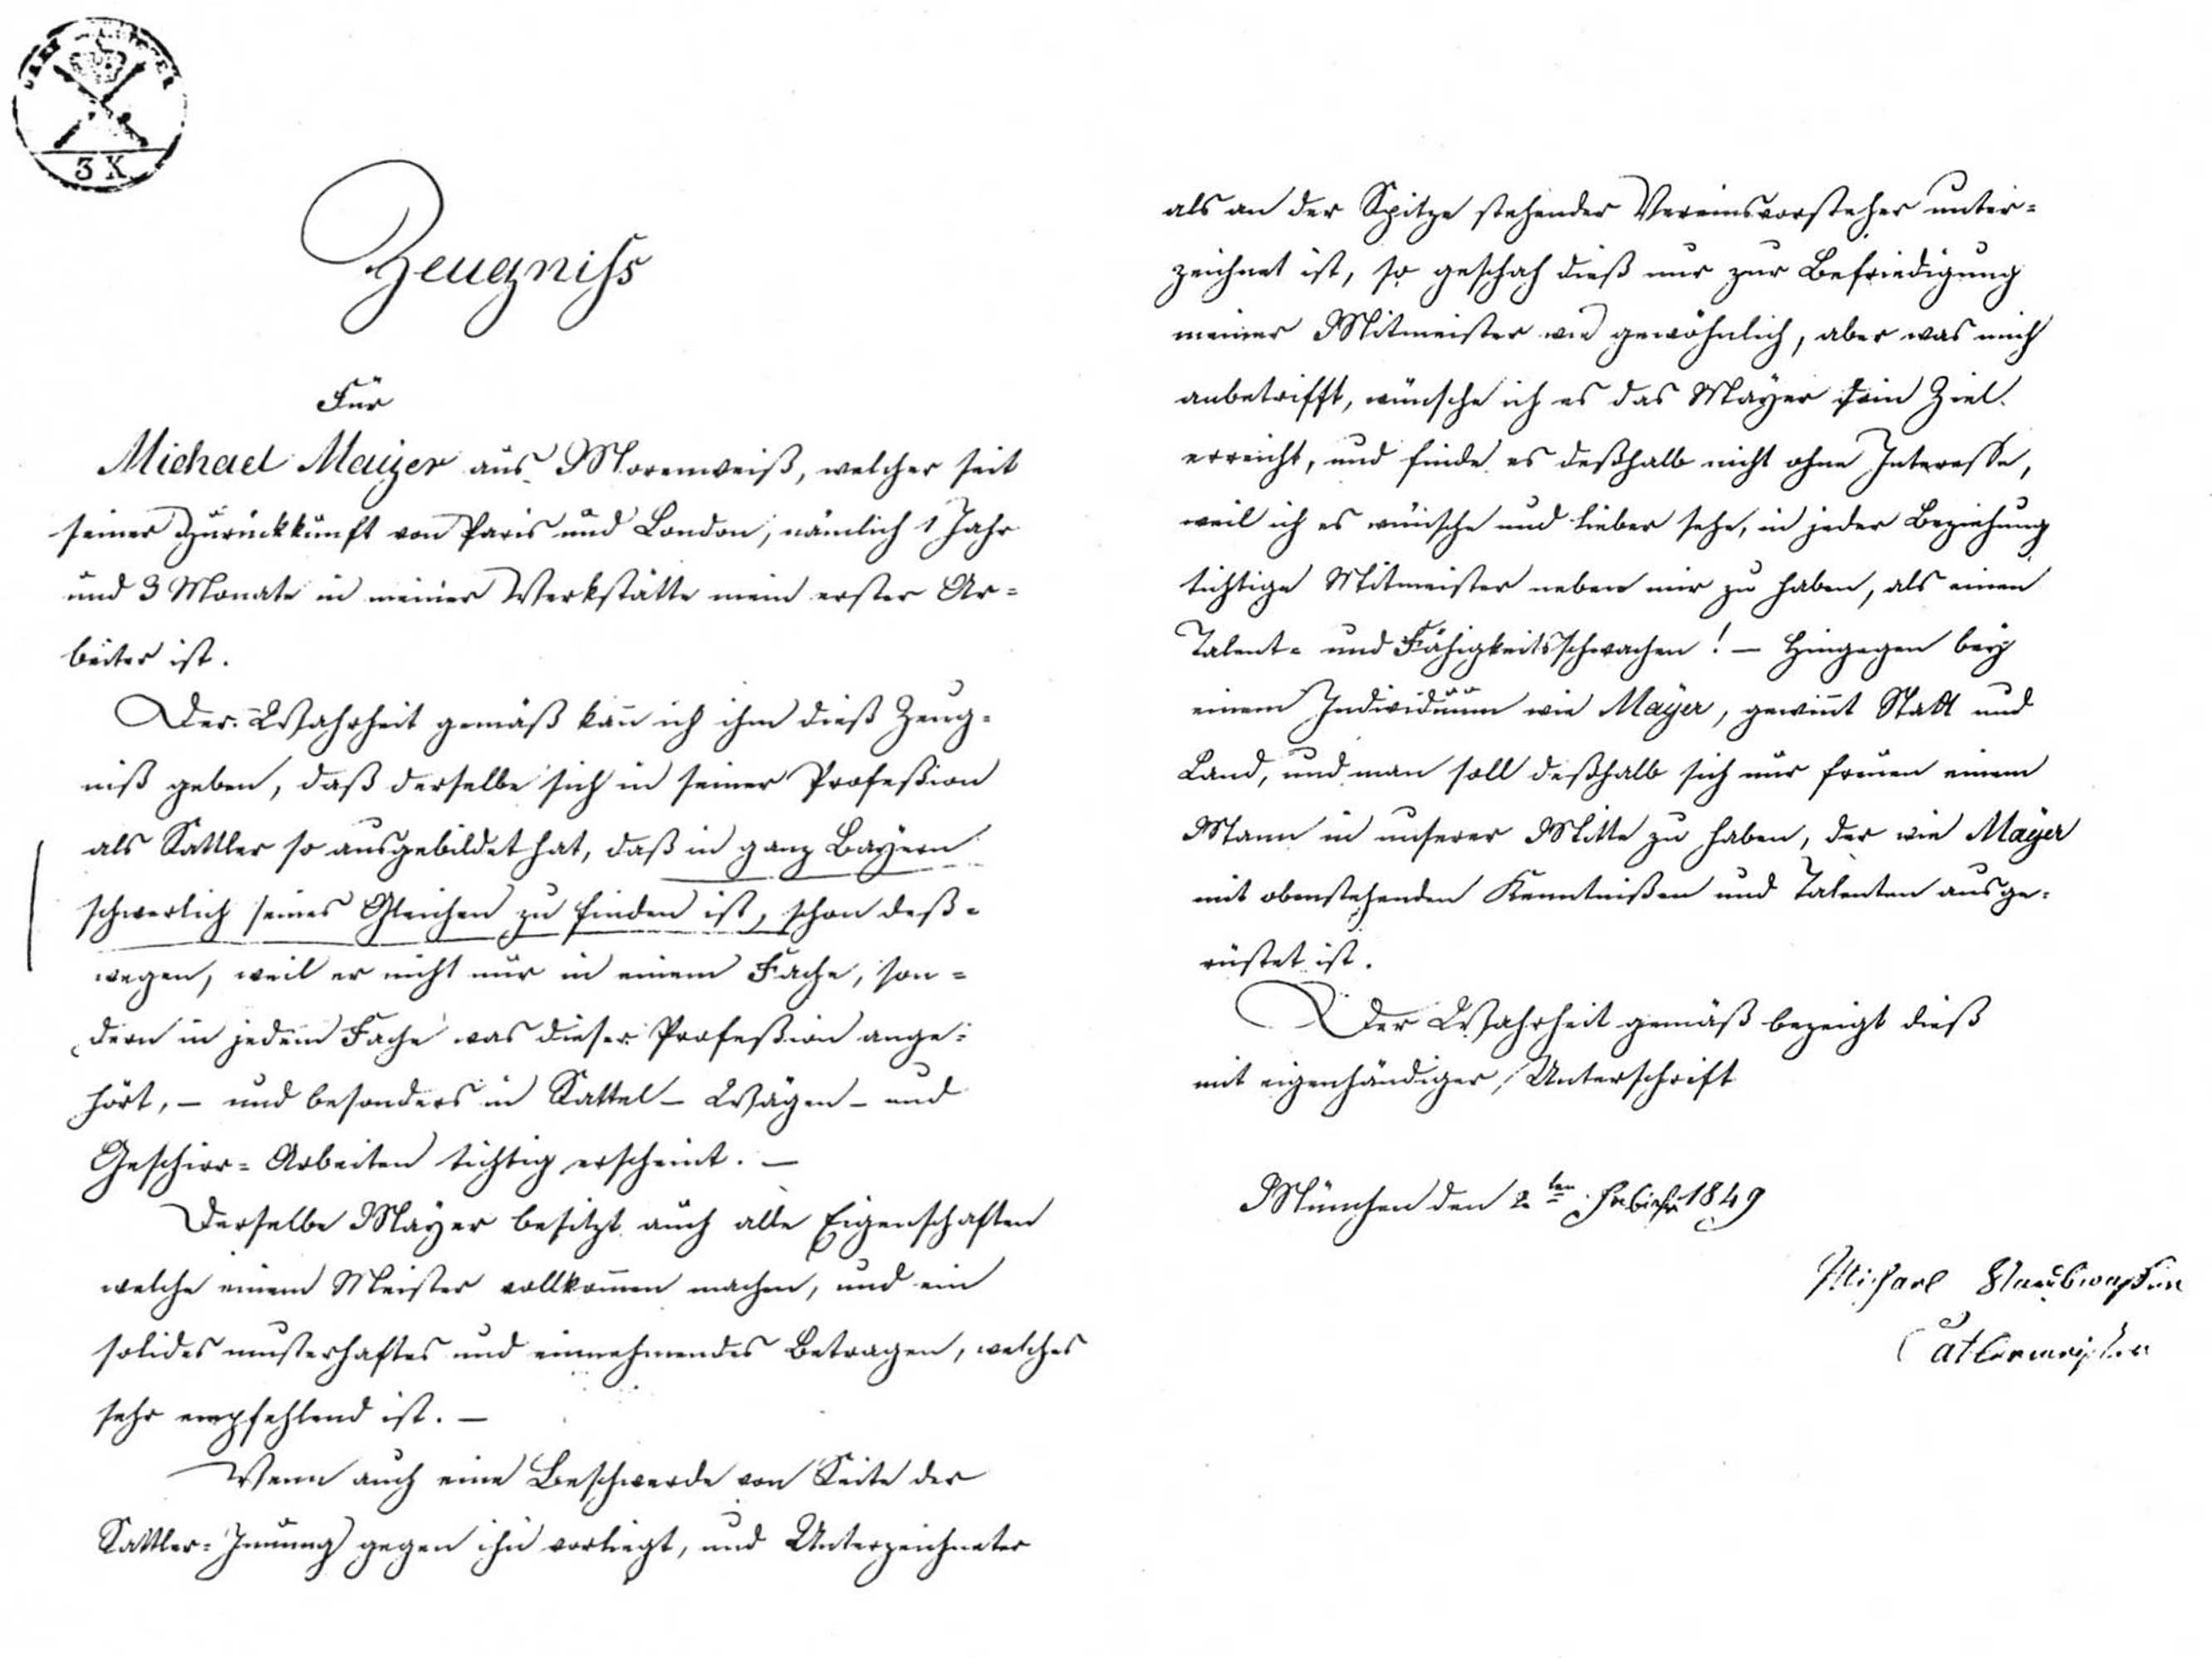 3 X
Zeugniss
Für
Michael Mayer aus Morenweiß, welcher seit
seiner Zurückkunft von Paris und London, nämlich 1 Jahr
und 3 Monate in meiner Werkstätte mein erster Ar=
beiter ist.
Der Wahrheit gemäß kan̄ ich ihm dieß Zeug=
niß geben, daß derselbe sich in seiner Profeßion
als Sattler so ausgebildet hat, daß in ganz Bayern
schwerlich seines Gleichen zu finden ist, schon deß=
wegen, weil er nicht nur in einem Fache, son=
dern in jedem Fache was dieser Profeßion ange=
hört, – und besonders in Sattel– Wägen– und
Geschirr=Arbeiten tichtig erscheint. –
Derselbe Mayer besitzt auch alle Eigenschaften
welche einem Meister vollkom̄en machen, und ein
solides musterhaftes und einnehmendes Betragen, welches
sehr empfehlend ist. –
Wenn auch eine Beschwerde von Seite der
Sattler=Innung gegen ihn vorliegt, und Unterzeichneter
als an der Spitze stehender Vereinsvorsteher unter=
zeichnet ist, so geschah dieß nur zur Befriedigung
meiner Mitmeister wie gewöhnlich, aber was mich
anbetrifft, wünsche ich es das Mayer sein Ziel
erreicht, und finde es deßhalb nicht ohne Interesse,
weil ich es wünsche und lieber sehe, in jeder Beziehung
tichtige Mitmeister neben mir zu haben, als einen
Talent= und Fähigkeitsschwachen! – Hingegen bey
einem Individuum wie Mayer, gewin̄t Statt und
Land, und man soll deßhalb sich nur freuen einem
Mann in unserer Mitte zu haben, der wie Mayer
mit obenstehenden Kenntnißen und Talenten ausge=
rüstet ist.
Der Wahrheit gemäß bezeigt dieß
mit eigenhändiger Unterschrift
München den 2ten 1849
Michael
Satlermeister